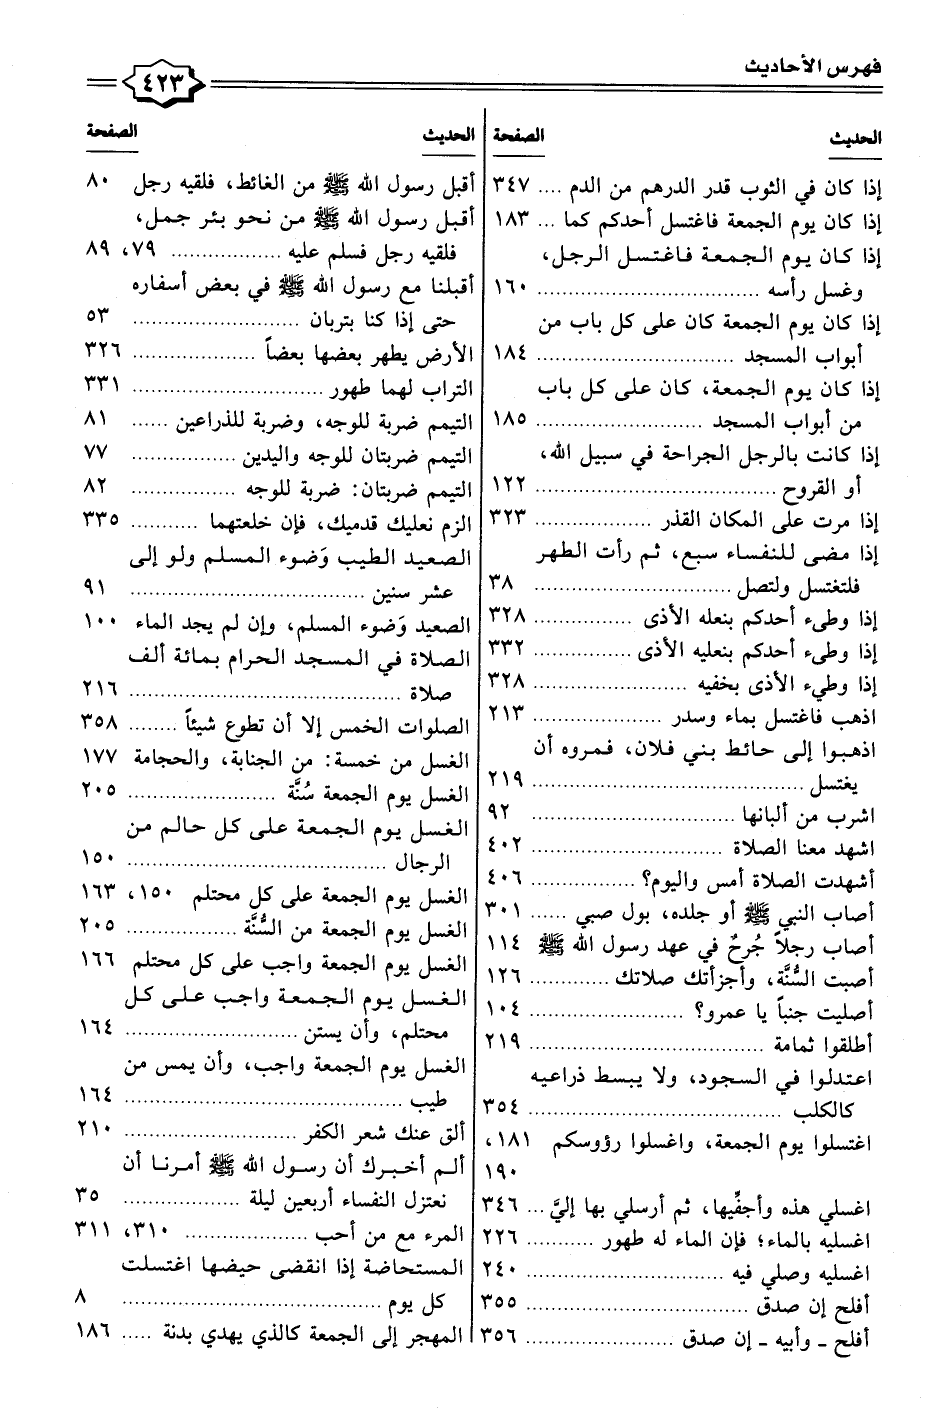 فهرس الأحاديث
٤٢٣
الحديث الصفحة
إذا كان في الثوب قدر الدرهم من الدم .... ٣٤٧
إذا كان يوم الجمعة فاغتسل أحدكم كما ... ١٨٣
إذا كان يوم الجمعة فاغتسل الرجل،
وغسل رأسه ................................ ١٦٠
إذا كان يوم الجمعة كان على كل باب من
أبواب المسجد ............................ ١٨٤
إذا كان يوم الجمعة، كان على كل باب
من أبواب المسجد ........................ ١٨٥
إذا كانت بالرجل الجراحة في سبيل الله،
أو القروح .................................. ١٢٢
إذا مرت على المكان القذر ................ ٣٢٣
إذا مضى للنفساء سبع، ثم رأت الطهر
فلتغتسل ولتصل ............................ ٣٨
إذا وطىء أحدكم بنعله الأذى .............. ٣٢٨
إذا وطىء أحدكم بنعليه الأذى .............. ٣٣٢
إذا وطيء الأذى بخفيه ...................... ٣٢٨
اذهب فاغتسل بماء وسدر .................. ٢١٣
اذهبوا إلى حائط بني فلان، فمروه أن
يغتسل ...................................... ٢١٩
اشرب من ألبانها ............................ ٩٢
اشهد معنا الصلاة .......................... ٤٠٢
أشهدت الصلاة أمس واليوم؟ .............. ٤٠٦
أصاب النبي ﷺ أو جلده، بول صبي ...... ٣٠١
أصاب رجلاً جُرحٌ في عهد رسول الله ﷺ ١١٤
أصبت السُّنَّة، وأجزأتك صلاتك ............ ١٢٦
أصليت جنباً يا عمرو؟ ...................... ١٠٤
أطلقوا ثمامة ................................ ٢١٩
اعتدلوا في السجود، ولا يبسط ذراعيه
كالكلب .................................... ٣٥٤
اغتسلوا يوم الجمعة، واغسلوا رؤوسكم ١٨١،
١٩٠
اغسلي هذه وأجفِّيها، ثم أرسلي بها إليَّ ... ٣٤٦
اغسليه بالماء؛ فإن الماء له طهور .......... ٢٢٦
اغسليه وصلي فيه .......................... ٢٤٠
أفلح إن صدق .............................. ٣٥٥
أفلح ـ وأبيه ـ إن صدق .................... ٣٥٦
الحديث الصفحة
أقبل رسول الله ﷺ من الغائط، فلقيه رجل ٨٠
أقبل رسول الله ﷺ من نحو بئر جمل،
فلقيه رجل فسلم عليه ................ ٧٩، ٨٩
أقبلنا مع رسول الله ﷺ في بعض أسفاره
حتى إذا كنا بتربان ........................ ٥٣
الأرض يطهر بعضها بعضاً .................. ٣٢٦
التراب لهما طهور .......................... ٣٣١
التيمم ضربة للوجه، وضربة للذراعين ...... ٨١
التيمم ضربتان للوجه واليدين .............. ٧٧
التيمم ضربتان: ضربة للوجه .............. ٨٢
الزم نعليك قدميك، فإن خلعتهما .......... ٣٣٥
الصعيد الطيب وَضوء المسلم ولو إلى
عشر سنين ................................ ٩١
الصعيد وَضوء المسلم، وإن لم يجد الماء ١٠٠
الصلاة في المسجد الحرام بمائة ألف
صلاة ...................................... ٢١٦
الصلوات الخمس إلا أن تطوع شيئاً ........ ٣٥٨
الغسل من خمسة: من الجنابة، والحجامة ١٧٧
الغسل يوم الجمعة سُنَّة .................... ٢٠٥
الغسل يوم الجمعة على كل حالم من
الرجال .................................... ١٥٠
الغسل يوم الجمعة على كل محتلم ١٥٠، ١٦٣
الغسل يوم الجمعة من السُّنَّة ................ ٢٠٥
الغسل يوم الجمعة واجب على كل محتلم ١٦٦
الغسل يوم الجمعة واجب على كل
محتلم، وأن يستن ........................ ١٦٤
الغسل يوم الجمعة واجب، وأن يمس من
طيب ...................................... ١٦٤
ألق عنك شعر الكفر ........................ ٢١٠
ألم أخبرك أن رسول الله ﷺ أمرنا أن
نعتزل النفساء أربعين ليلة ................ ٣٥
المرء مع من أحب .................. ٣١٠، ٣١١
المستحاضة إذا انقضى حيضها اغتسلت
كل يوم .................................... ٨
المهجر إلى الجمعة كالذي يهدي بدنة ..... ١٨٦